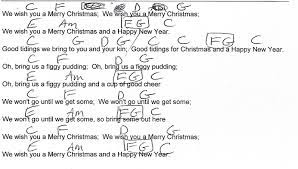 C F D G
We wish you a Merry Christmas; We wish you a Merry Christmas;
E Am FG C
We wish you a Merry Christmas and a Happy New Year.
C G D G / C G C
Good tidings we bring to you and your kin; Good tidings for Christmas and a Happy New Year.
C F D G
Oh, bring us a figgy pudding; Oh, bring us a figgy pudding;
E Am FG C
Oh, bring us a figgy pudding and a cup of good cheer
C F D G
We won't go until we get some; We won't go until we get some;
E Am FG C
We won't go until we get some, so bring some out here
C F D G
We wish you a Merry Christmas; We wish you a Merry Christmas;
E Am FG C
We wish you a Merry Christmas and a Happy New Year.